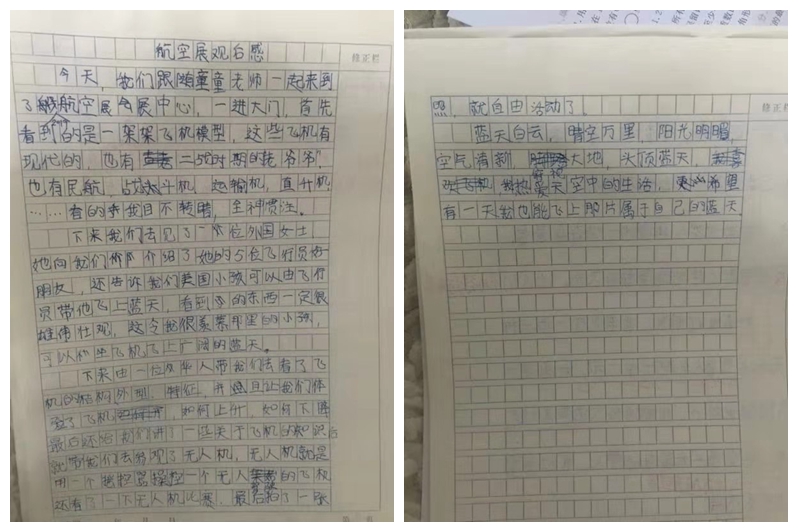 航空展观后感
修正栏
今天，我们跟随童童老师一起来到
了航空展会展中心，一进大门，首先
看到的是一架架飞机模型，这些飞机有
现代的，也有二战时期的"老爷爷"
也有民航，战斗机，运输机，直升机
……看的我目不转睛，全神惯注。
下来我们去见了一位外国女士，
她向我们介绍了她的5位飞行员好
朋友，还告诉我们美国小孩可以由飞行
员带他飞上蓝天，看到的东西一定很
雄伟壮观，这令我很羡慕那里的小孩，
可以坐飞机飞上广阔的蓝天。
下来由一位华人带我们去看了飞
机的结构外型，特征，并且让我们体
验了飞机如何上升，如何下降
最后还给我们讲了一些关于飞机的知识后
就带我们去发现了无人机，无人机就是
用一个遥控器操控一个无人的飞机
还有了一下无人机比赛，最后拍了一张
照，就自由活动了
修正栏
蓝天白云，晴空万里，阳光明媚，
空气清新，大地，头顶蓝天，
我热爱天空中的生活，希望
有一天我也能飞上那片属于自己的蓝天